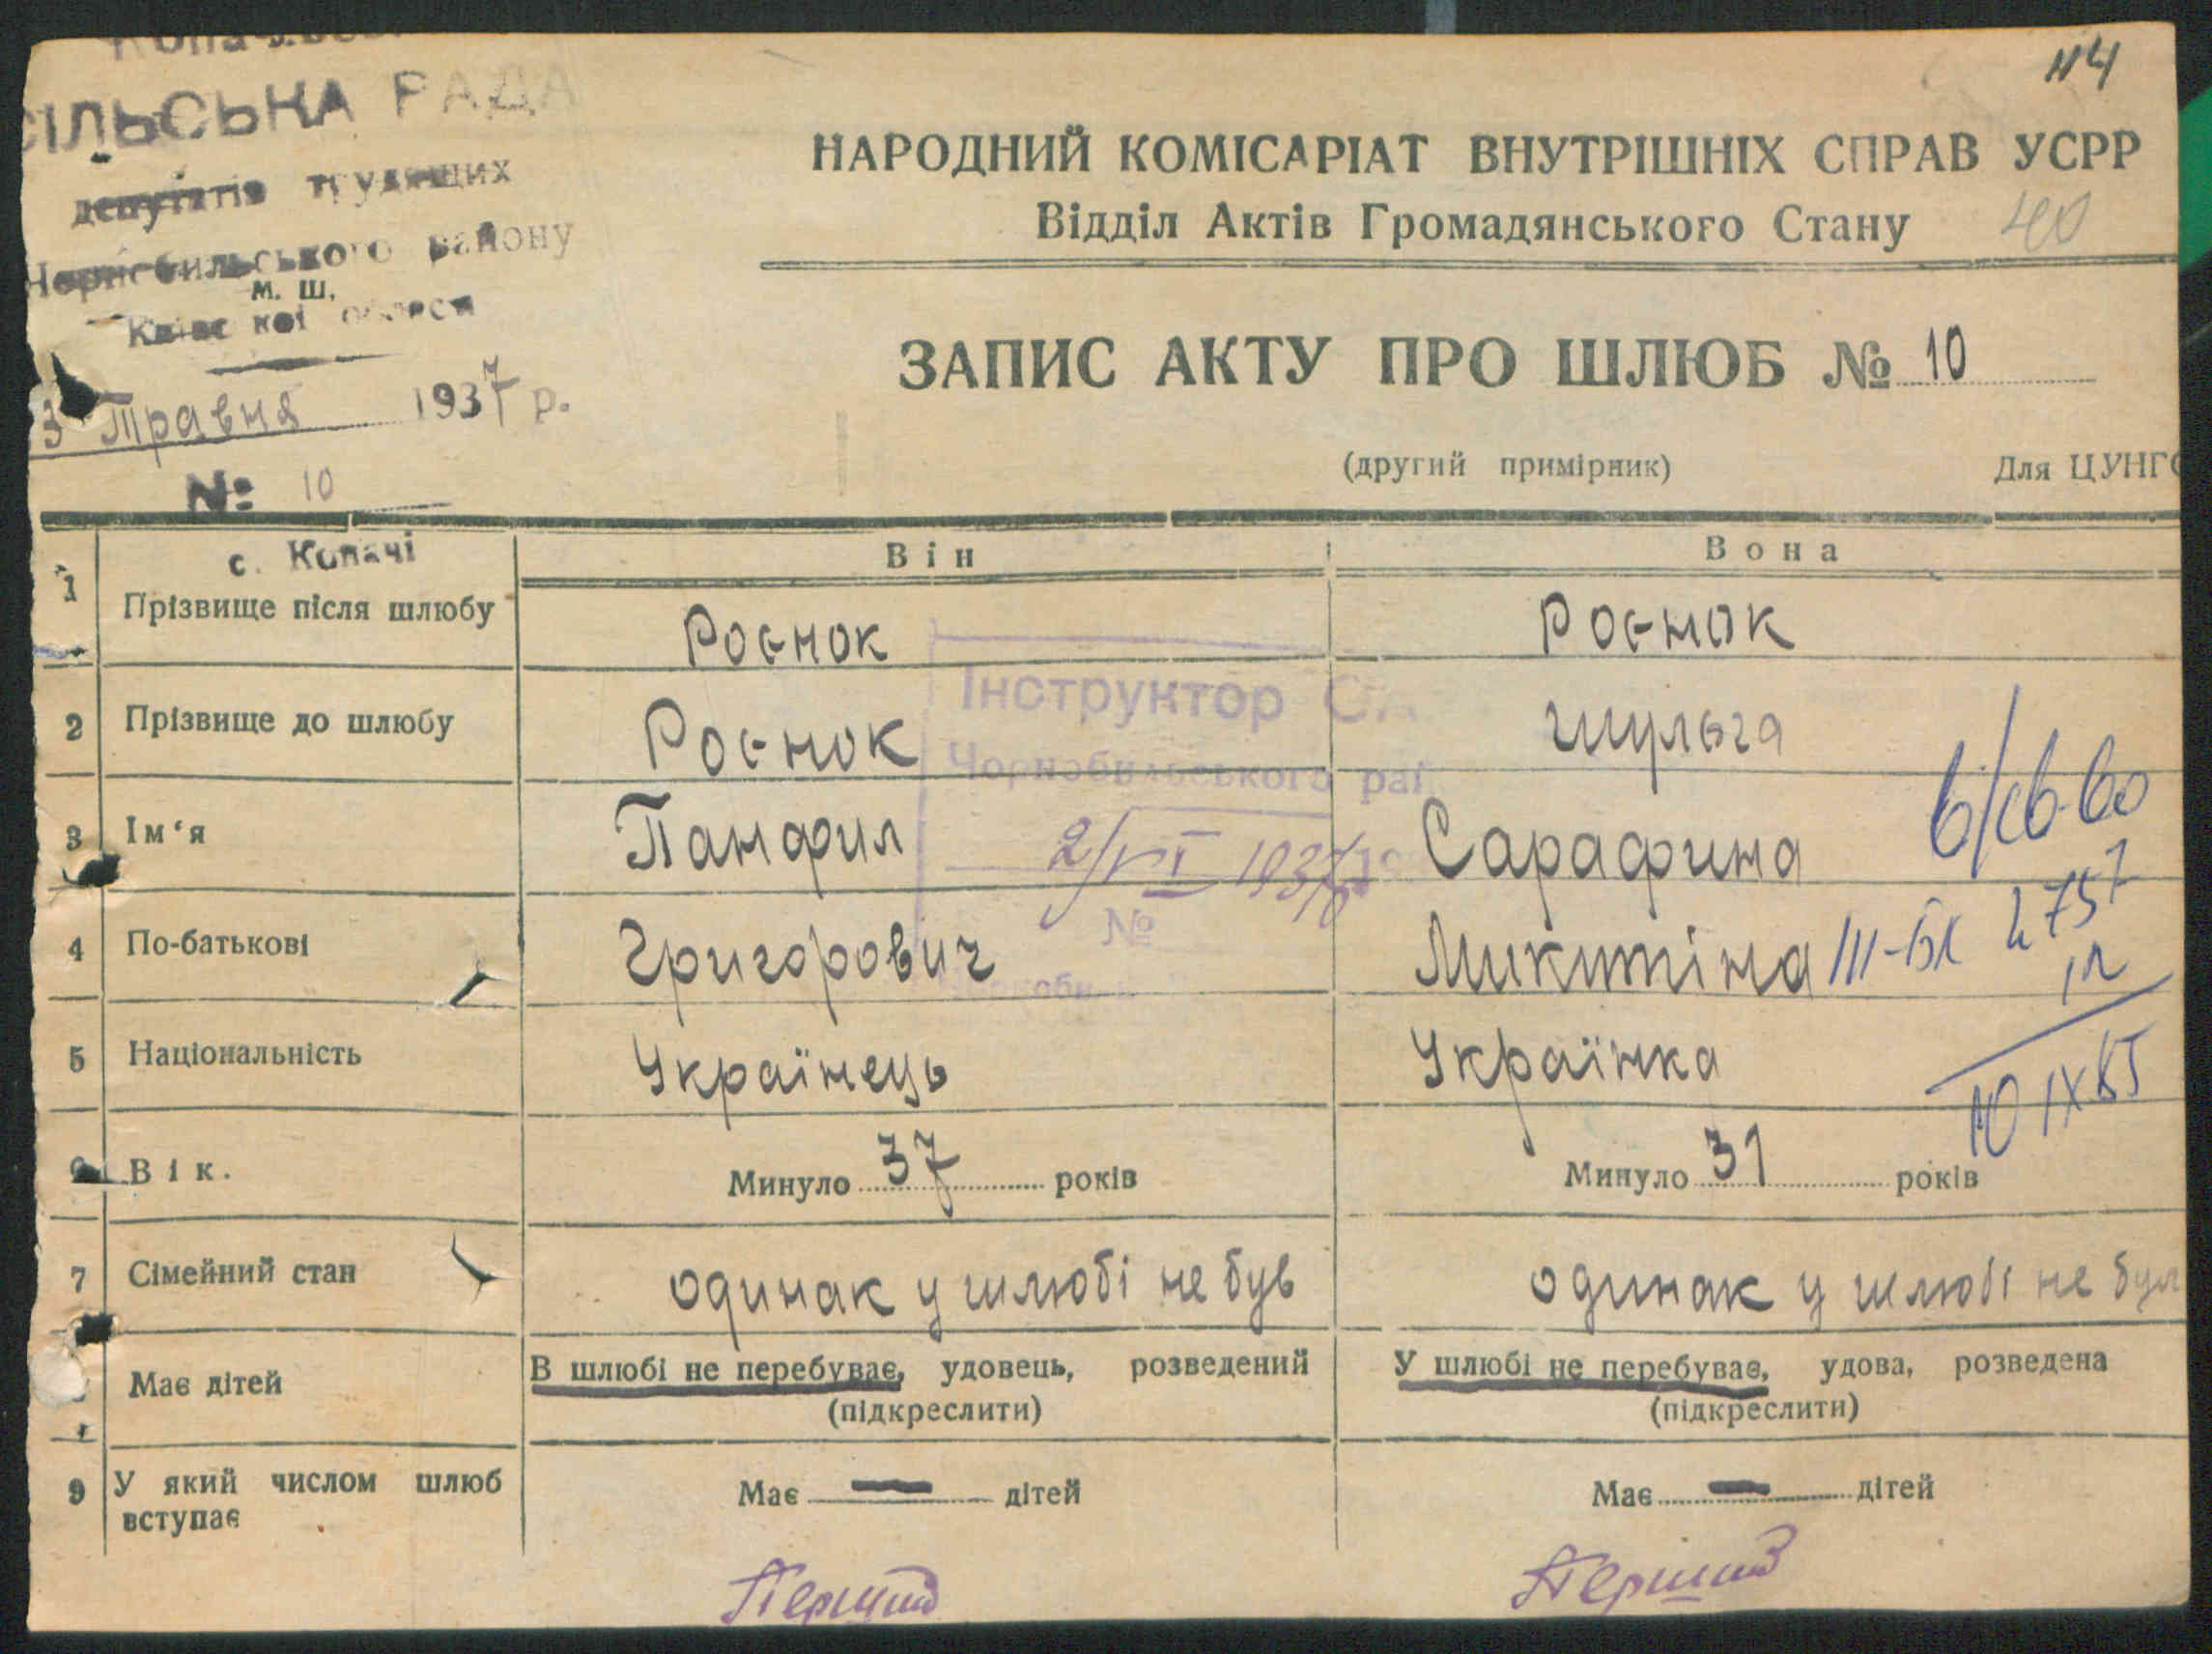 СІЛЬСЬКА РАДА
депутатів трудящих
Чорнобильського району
м. ш.
Київської області
3 Травня 1937 р.
№ 10
114
НАРОДНИЙ КОМІСАРІАТ ВНУТРІШНІХ СПРАВ УСРР
Відділ Актів Громадянського Стану 40
ЗАПИС АКТУ ПРО ШЛЮБ № 10
(другий примірник) Для ЦУНГО
с. Копачі Він Вона
1 Прізвище після шлюбу Роєнок Роєнок
2 Прізвище до шлюбу Роєнок Шульга
Інструктор
Чорнобильського рай
3 Ім‘я Панфил Сарафина
2/VI 1937
№
4 По-батькові Григорович Микитіна III-БК 4757
5 Національність Українець Українка
10 IX 65
6 Вік. Минуло 37 років Минуло 31 років
7 Сімейний стан одинак у шлюбі не був одинак у шлюбі не бул
Має дітей В шлюбі не перебуває, удовець, розведений У шлюбі не перебуває, удова, розведена
(підкреслити) (підкреслити)
9 У який числом шлюб вступає Має — дітей Має — дітей
Перший Перший